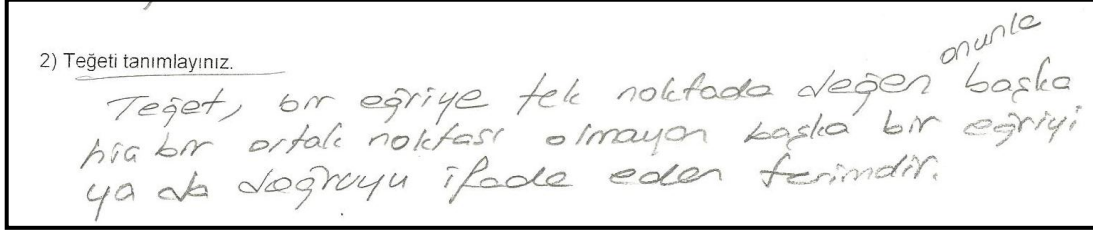 2) Teğeti tanımlayınız.
onunla
Teğet, bir eğriye tek noktada değen başka
hiç bir ortak noktası olmayan başka bir eğriyi
ya da doğruyu ifade eden terimdir.